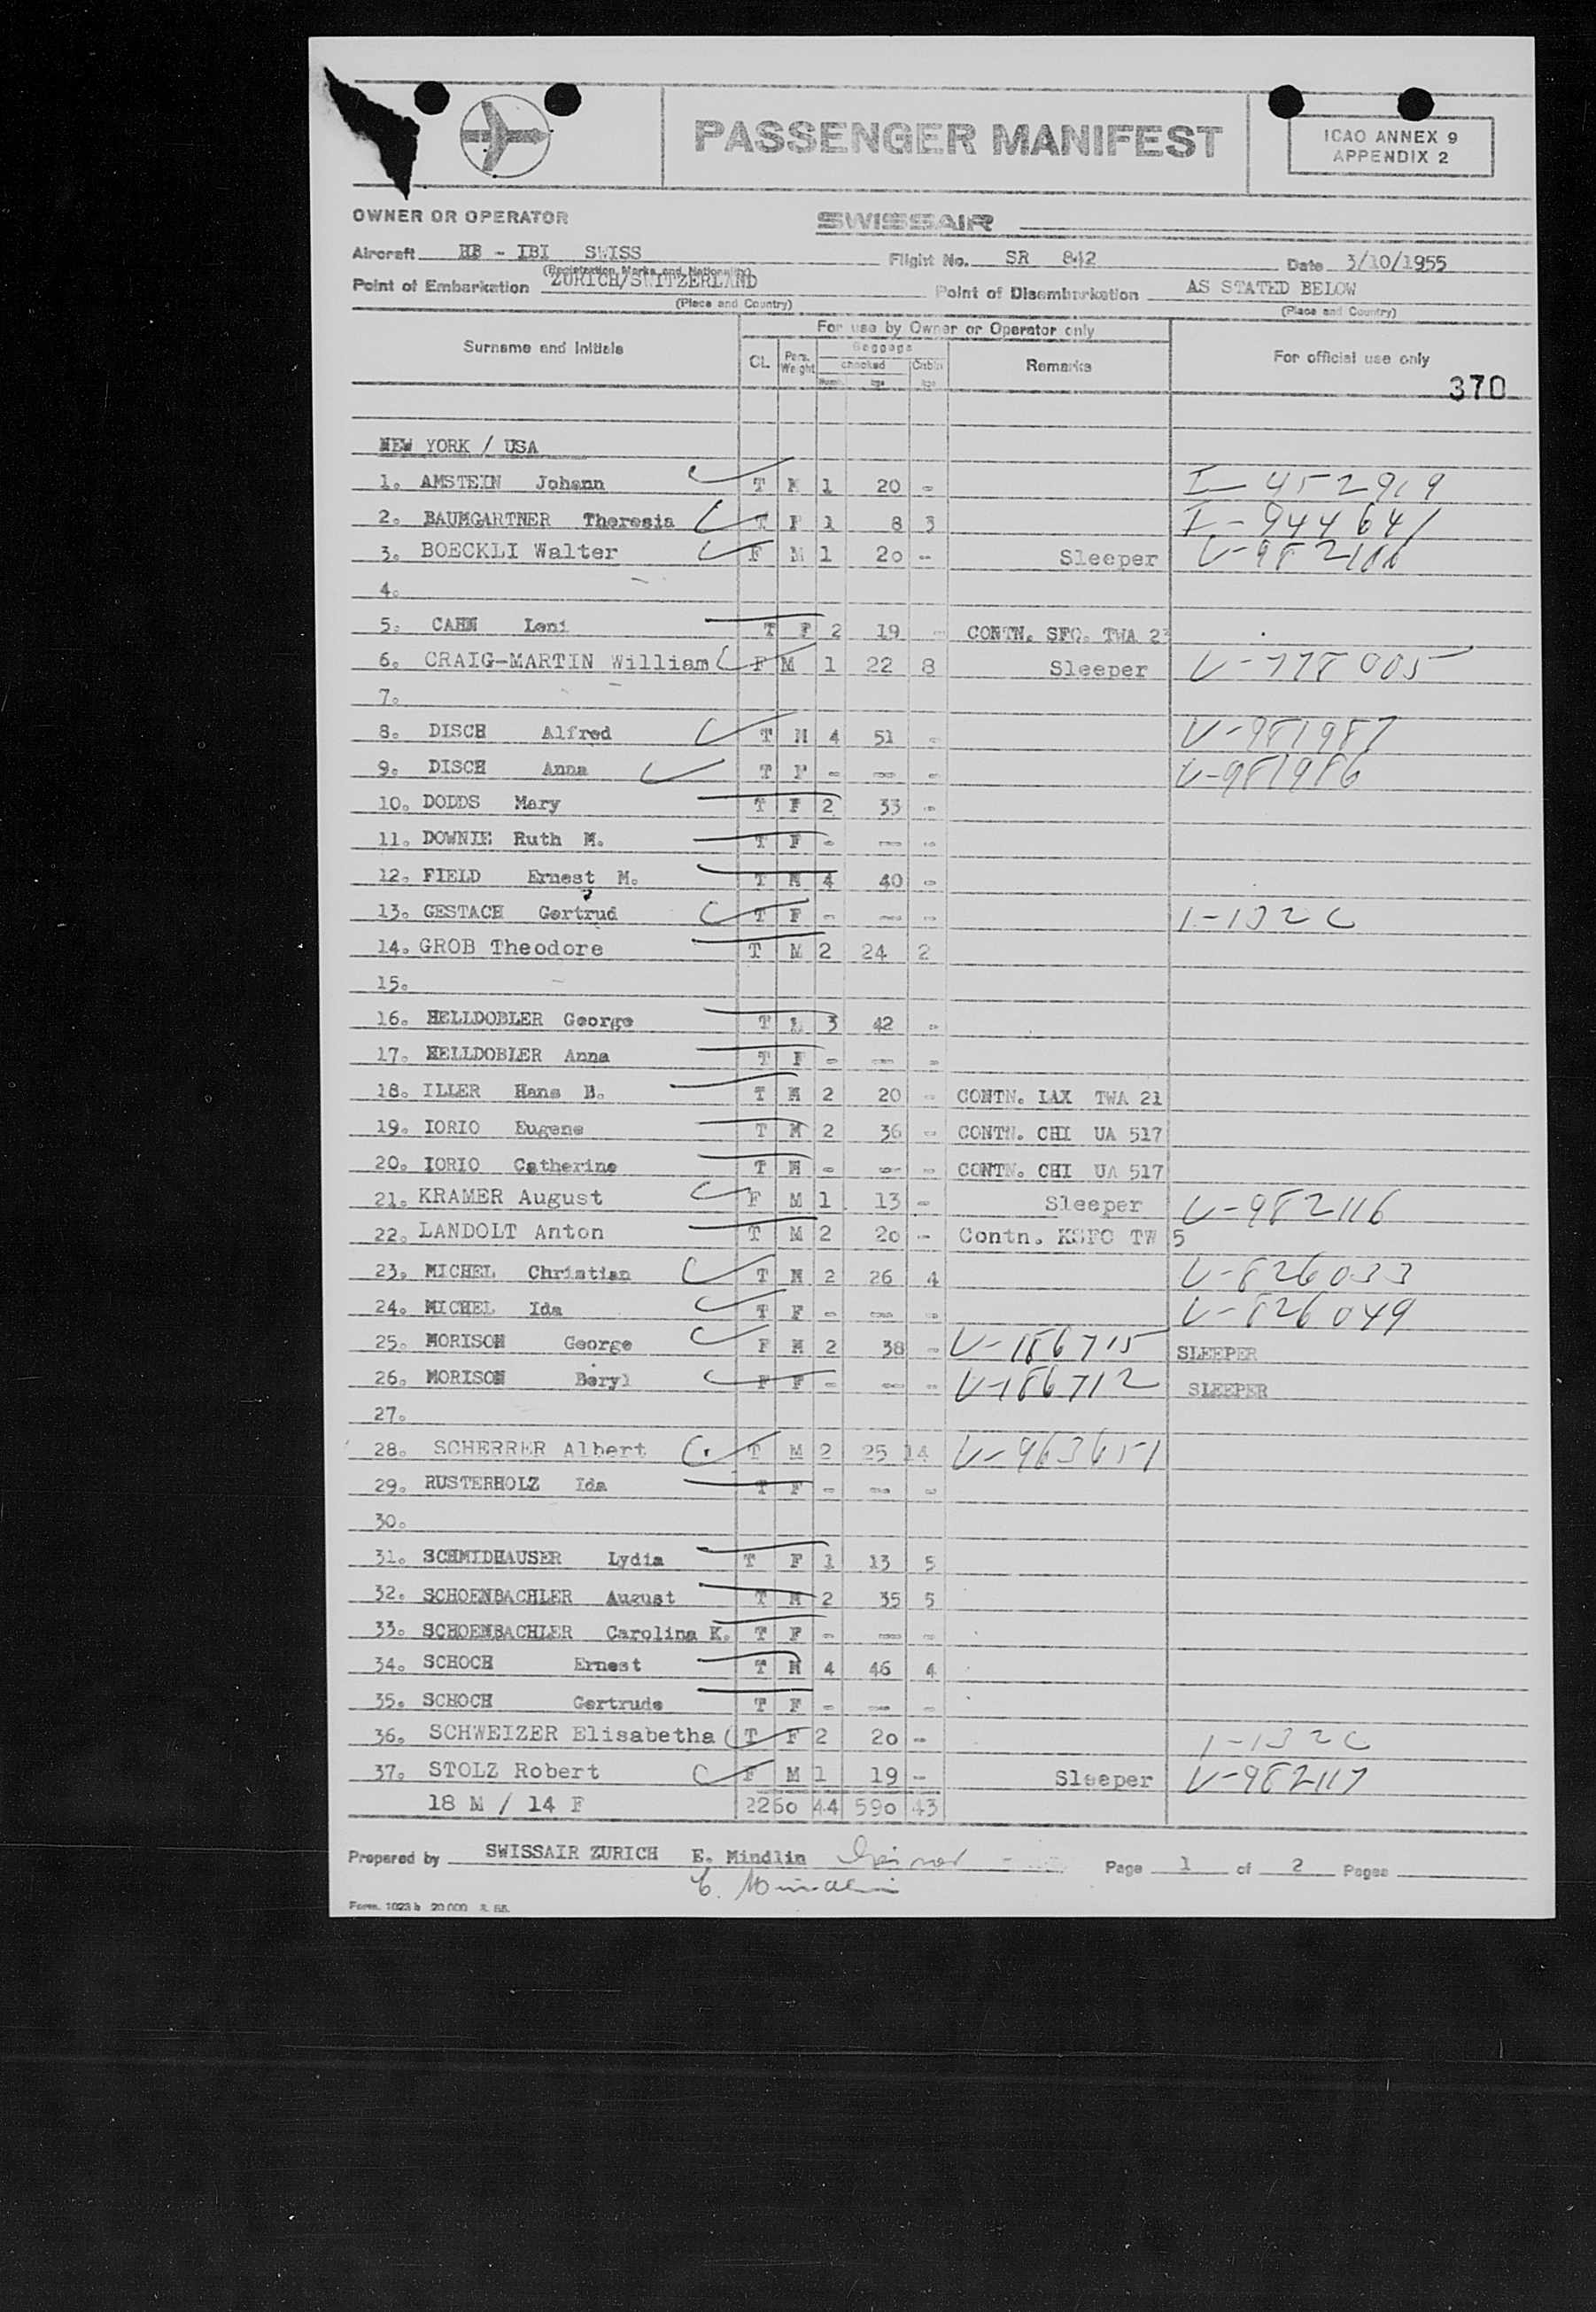 PASSENGER MANIFEST
ICAO ANNEX 9
APPENDIX 2
OWNER OR OPERATOR SWISSAIR
Aircraft HB - IBI SWISS Flight No. SR 842 Date 3/10/1955
(Registration Marks and Nationality)
Point of Embarkation ZURICH/SWITZERLAND Point of Disembarkation AS STATED BELOW
(Place and Country) (Place and Country)
For use by Owner or Operator only
Surname and Initials CL. Pers. Weight Baggage checked Cabin Remarks For official use only
Numb. kgs kgs
370
NEW YORK / USA
1. AMSTEIN Johann T M 1 20 - I-452919
2. BAUMGARTNER Theresia T F 1 8 3 I-944641
3. BOECKLI Walter F M 1 20 - Sleeper
4.
5. CAHN Leni T F 2 19 - CONTN. SFO. TWA 23
6. CRAIG-MARTIN William F M 1 22 8 Sleeper V-778005
7.
8. DISCH Alfred T M 4 51 - V-981987
9. DISCH Anna T F - - - V-981986
10. DODDS Mary T F 2 33 -
11. DOWNIE Ruth M. T F - - -
12. FIELD Ernest M. T M 4 40 -
13. GESTACH Gertrud T F - - - 1-132C
14. GROB Theodore T M 2 24 2
15.
16. HELLDOBLER George T 3 42 -
17. HELLDOBLER Anna T F - - -
18. ILLER Hans B. T M 2 20 - CONTN. LAX TWA 21
19. IORIO Eugene T M 2 36 - CONTN. CHI UA 517
20. IORIO Catherine T M - - - CONTN. CHI UA 517
21. KRAMER August F M 1 13 - Sleeper V-982116
22. LANDOLT Anton T M 2 20 - Contn. KSFO TW 5
23. MICHEL Christian T M 2 26 4 V-826033
24. MICHEL Ida T F - - - V-826049
25. MORISON George F M 2 38 - V-186715 SLEEPER
26. MORISON Beryl F F - - - V-186712 SLEEPER
27.
28. SCHERRER Albert T M 2 25 14 V-963651
29. RUSTERHOLZ Ida T F - - -
30.
31. SCHMIDHAUSER Lydia T F 1 13 5
32. SCHOENBACHLER August T M 2 35 5
33. SCHOENBACHLER Carolina K. T F - - -
34. SCHOCH Ernest T M 4 46 4
35. SCHOCH Gertrude T F - - -
36. SCHWEIZER Elisabetha T F 2 20 - 1-132C
37. STOLZ Robert F M 1 19 - Sleeper V-982117
18 M / 14 F 2260 44 590 43
Prepared by SWISSAIR ZURICH E. Mindlin Page 1 of 2 Pages
E. Mindlin
Form. 1023 b 20 000